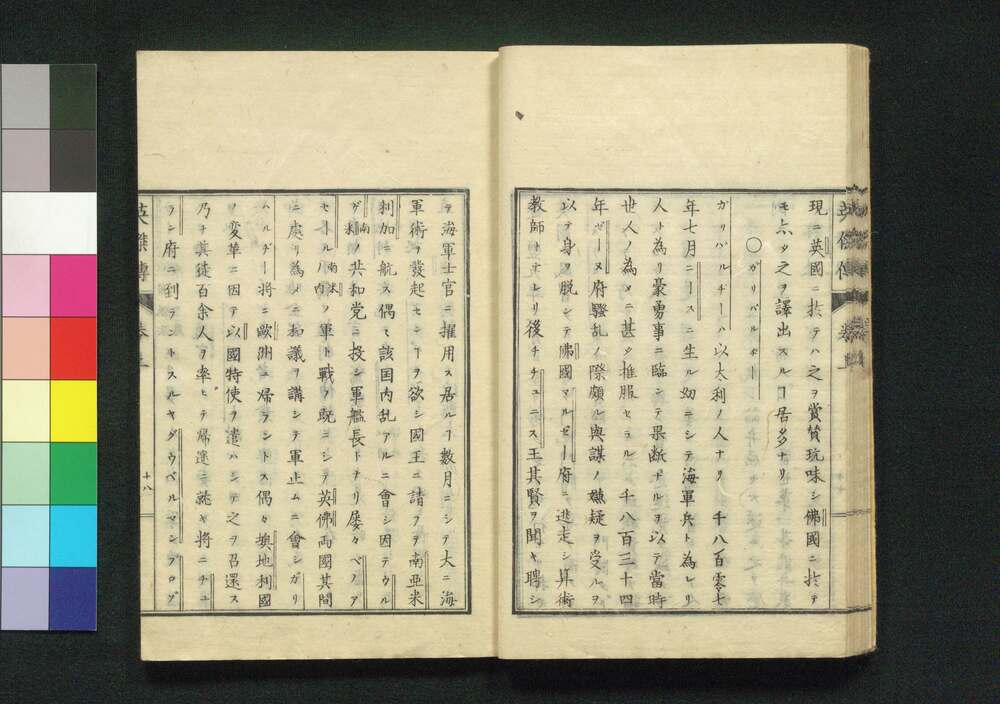 現ニ英國ニ於テハ之ヲ賞賛玩味シ佛國ニ於テ
モ亦タ之ヲ譯出スルヿ居多ナリ
○ガリバルヂー
ガリハルヂーハ以太利ノ人ナリ 千八百零七
年七月ニースニ生ル幼ニシテ海軍兵ト為レリ
人ト為リ豪勇事ニ臨ンテ果断ナルヲ以テ當時
世人ノ為メニ甚タ推服セラル 千八百三十四
年ゼーヌ府騒乱ノ際頗ル與謀ノ嫌疑ヲ受ルヲ
以テ身ヲ脱シテ佛國マルゼー府ニ逃走シ算術
教師トナレリ後チチュニス王其賢ヲ聞キ聘シ
テ海軍士官ニ擢用ス居ルヿ數月ニシテ大ニ海
軍術ヲ發起センヿヲ欲シ國王ニ請フテ南亜米
利加ニ航ス偶々該国内乱アルニ會シ因テウル
グ南米ノ共和党ニ投シ軍艦長トナリ屡々ベノアア
セール南米ノ内ノ軍ト戰フ既ニシテ英佛両國其間
ニ處リ為メニ和議ヲ講シテ軍止ムニ會シガリ
ハルヂー将ニ歐洲ニ帰ラントス偶々墺地利國
ノ変革ニ因テ以國特使ヲ遣ハシテ之ヲ召還ス
乃チ其徒百余人ヲ率ヒテ帰途ニ就キ将ニチュ
ラン府ニ到ラントスルヤグウベルマンプロヴ
英傑傳 巻之
十八